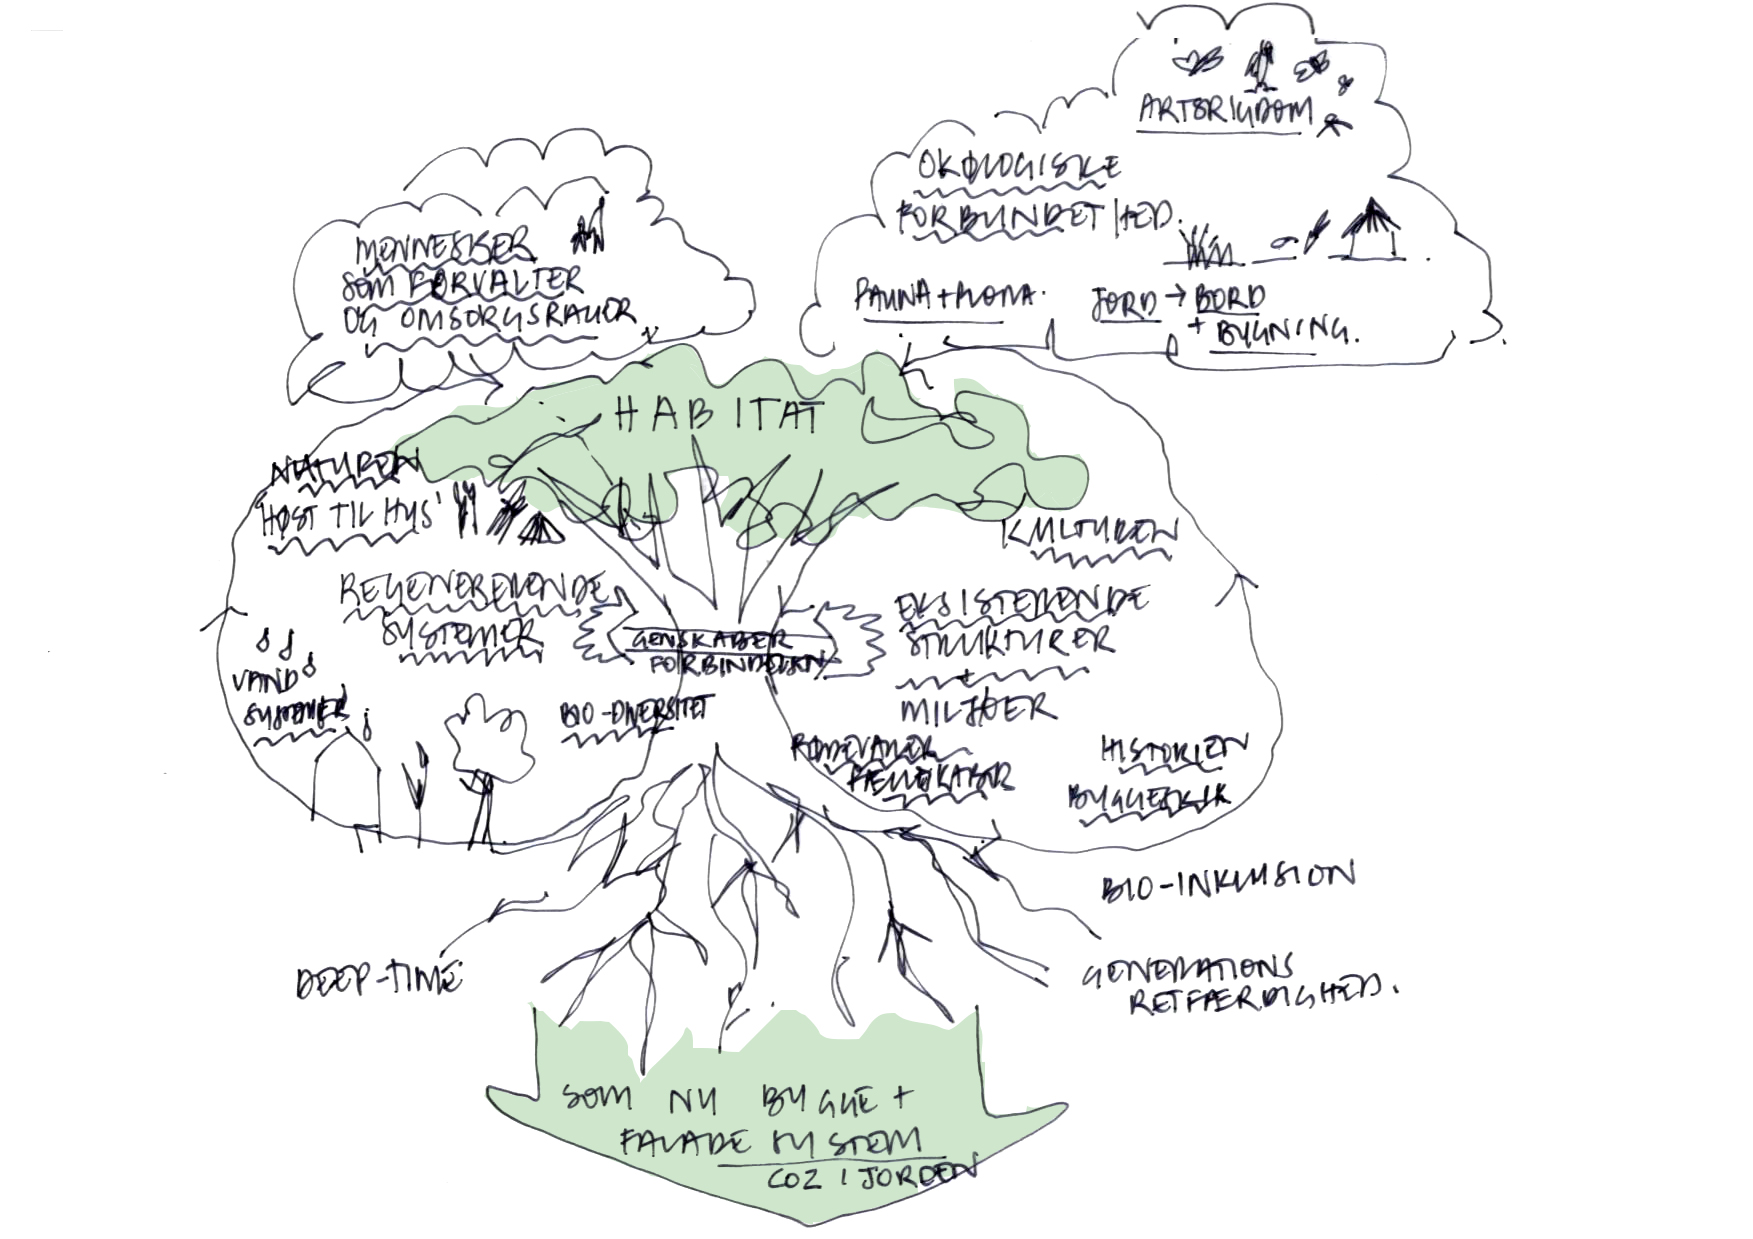 ARTSRIGDOM
ØKOLOGISKE
FORBUNDETHED.
FAUNA + FLORA.
JORD → BORD
+ BYGNING.
MENNESKER
SOM FORVALTER
OG OMSORGSRAUOR
HABITAT
NATUREN
HØST TIL HUS
REGENERERENDE
SYSTEMER
VAND
SYSTEMER
BIO-DIVERSITET
GENSKABER
FORBINDELSEN
KULTUREN
EKSISTERENDE
STRUKTURER
+
MILJØER
FØDEVARER
FÆLLESKABER
HISTORIEN
BYGGESKIK
DEEP-TIME
BIO-INKLUSION
GENERATIONS
RETFÆRDIGHED.
SOM NU BYGGE +
FACADE SYSTEM
CO2 I JORDEN